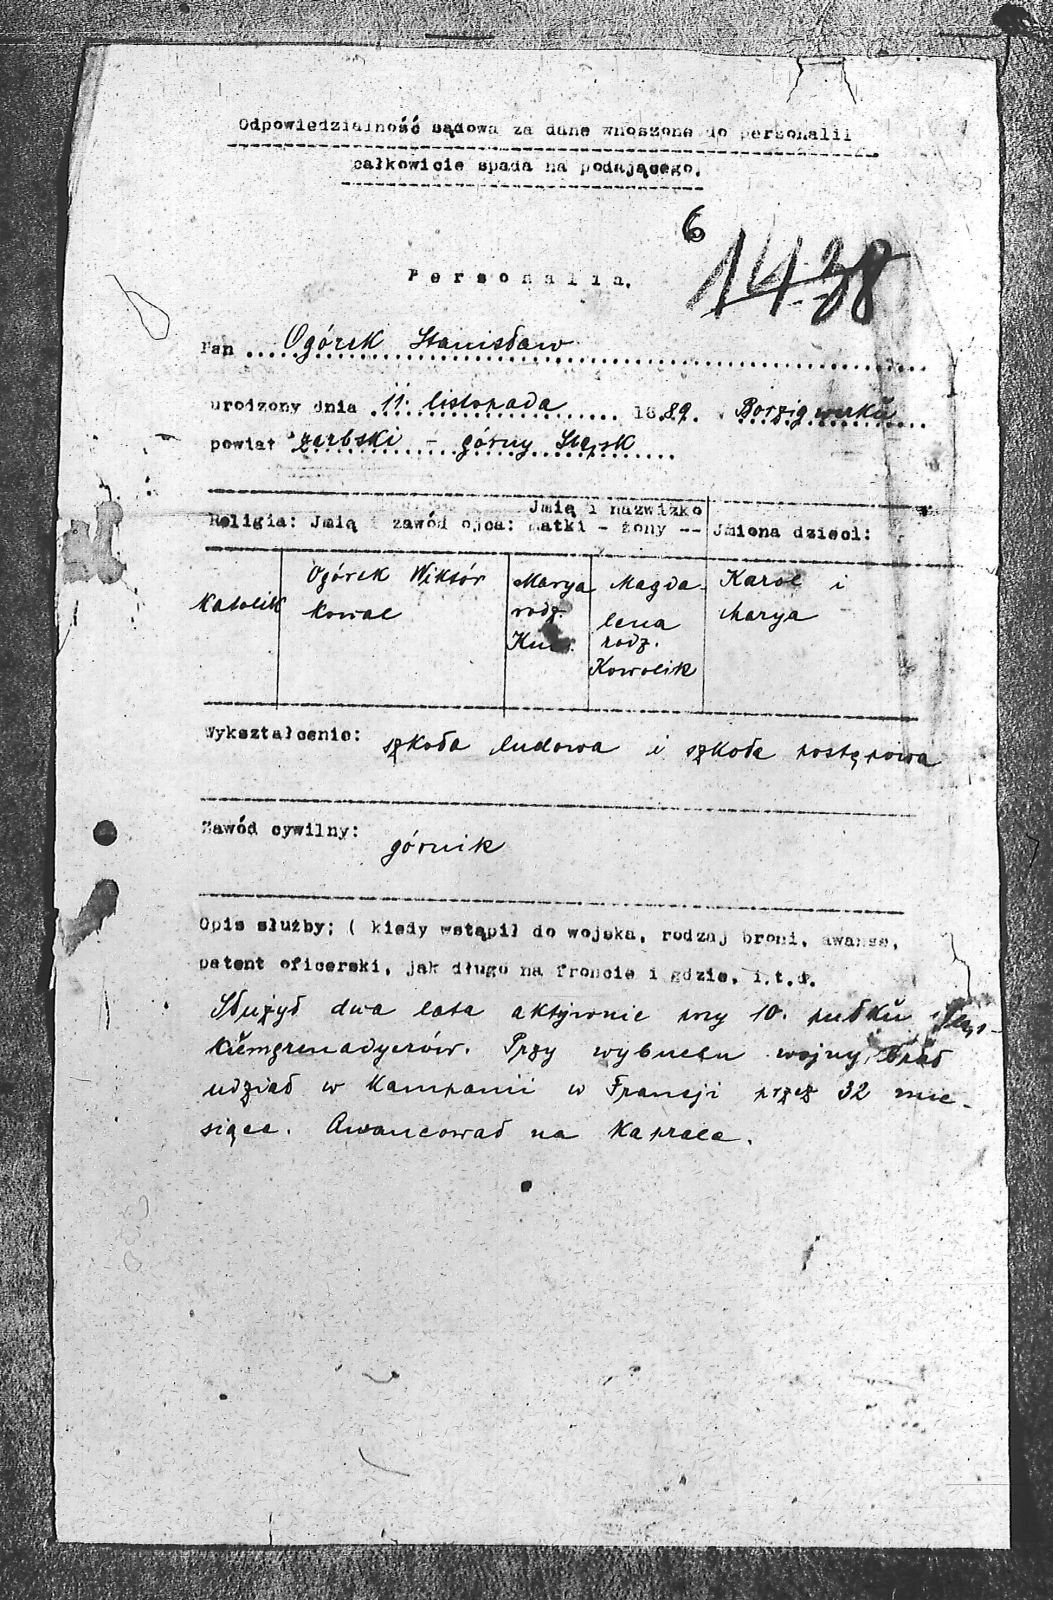 Odpowiedzialność sądowa za dane wnoszone do personalii
całkowicie spada na podającego.
6
1438
Personalia.
Pan Ogórek Stanisław
urodzony dnia 11. listopada 1889. w Borzigwerku
powiat zarbski - górny Sląsk
Religia: Jmię i zawód ojca: Jmię i nazwizko matki - żony -- Jmiona dzieci:
Katolik
Ogórek Wiktór
kowal
Marya
rodz.
Magda-
lena
rodz.
Kowolik
Karol i
Marya
Wykształcenie: szkoła ludowa i szkoła postępowa
Zawód cywilny: górnik
Opis służby; ( kiedy wstąpił do wojska, rodzaj broni, awanse,
patent oficerski, jak długo na froncie i gdzie, i.t.d.
Służył dwa lata aktywnie przy 10. pułku
Przy wybuchu wojny brał
udział w kampanii w Francji przez 32 mie-
siące. Awancował na kaprala.